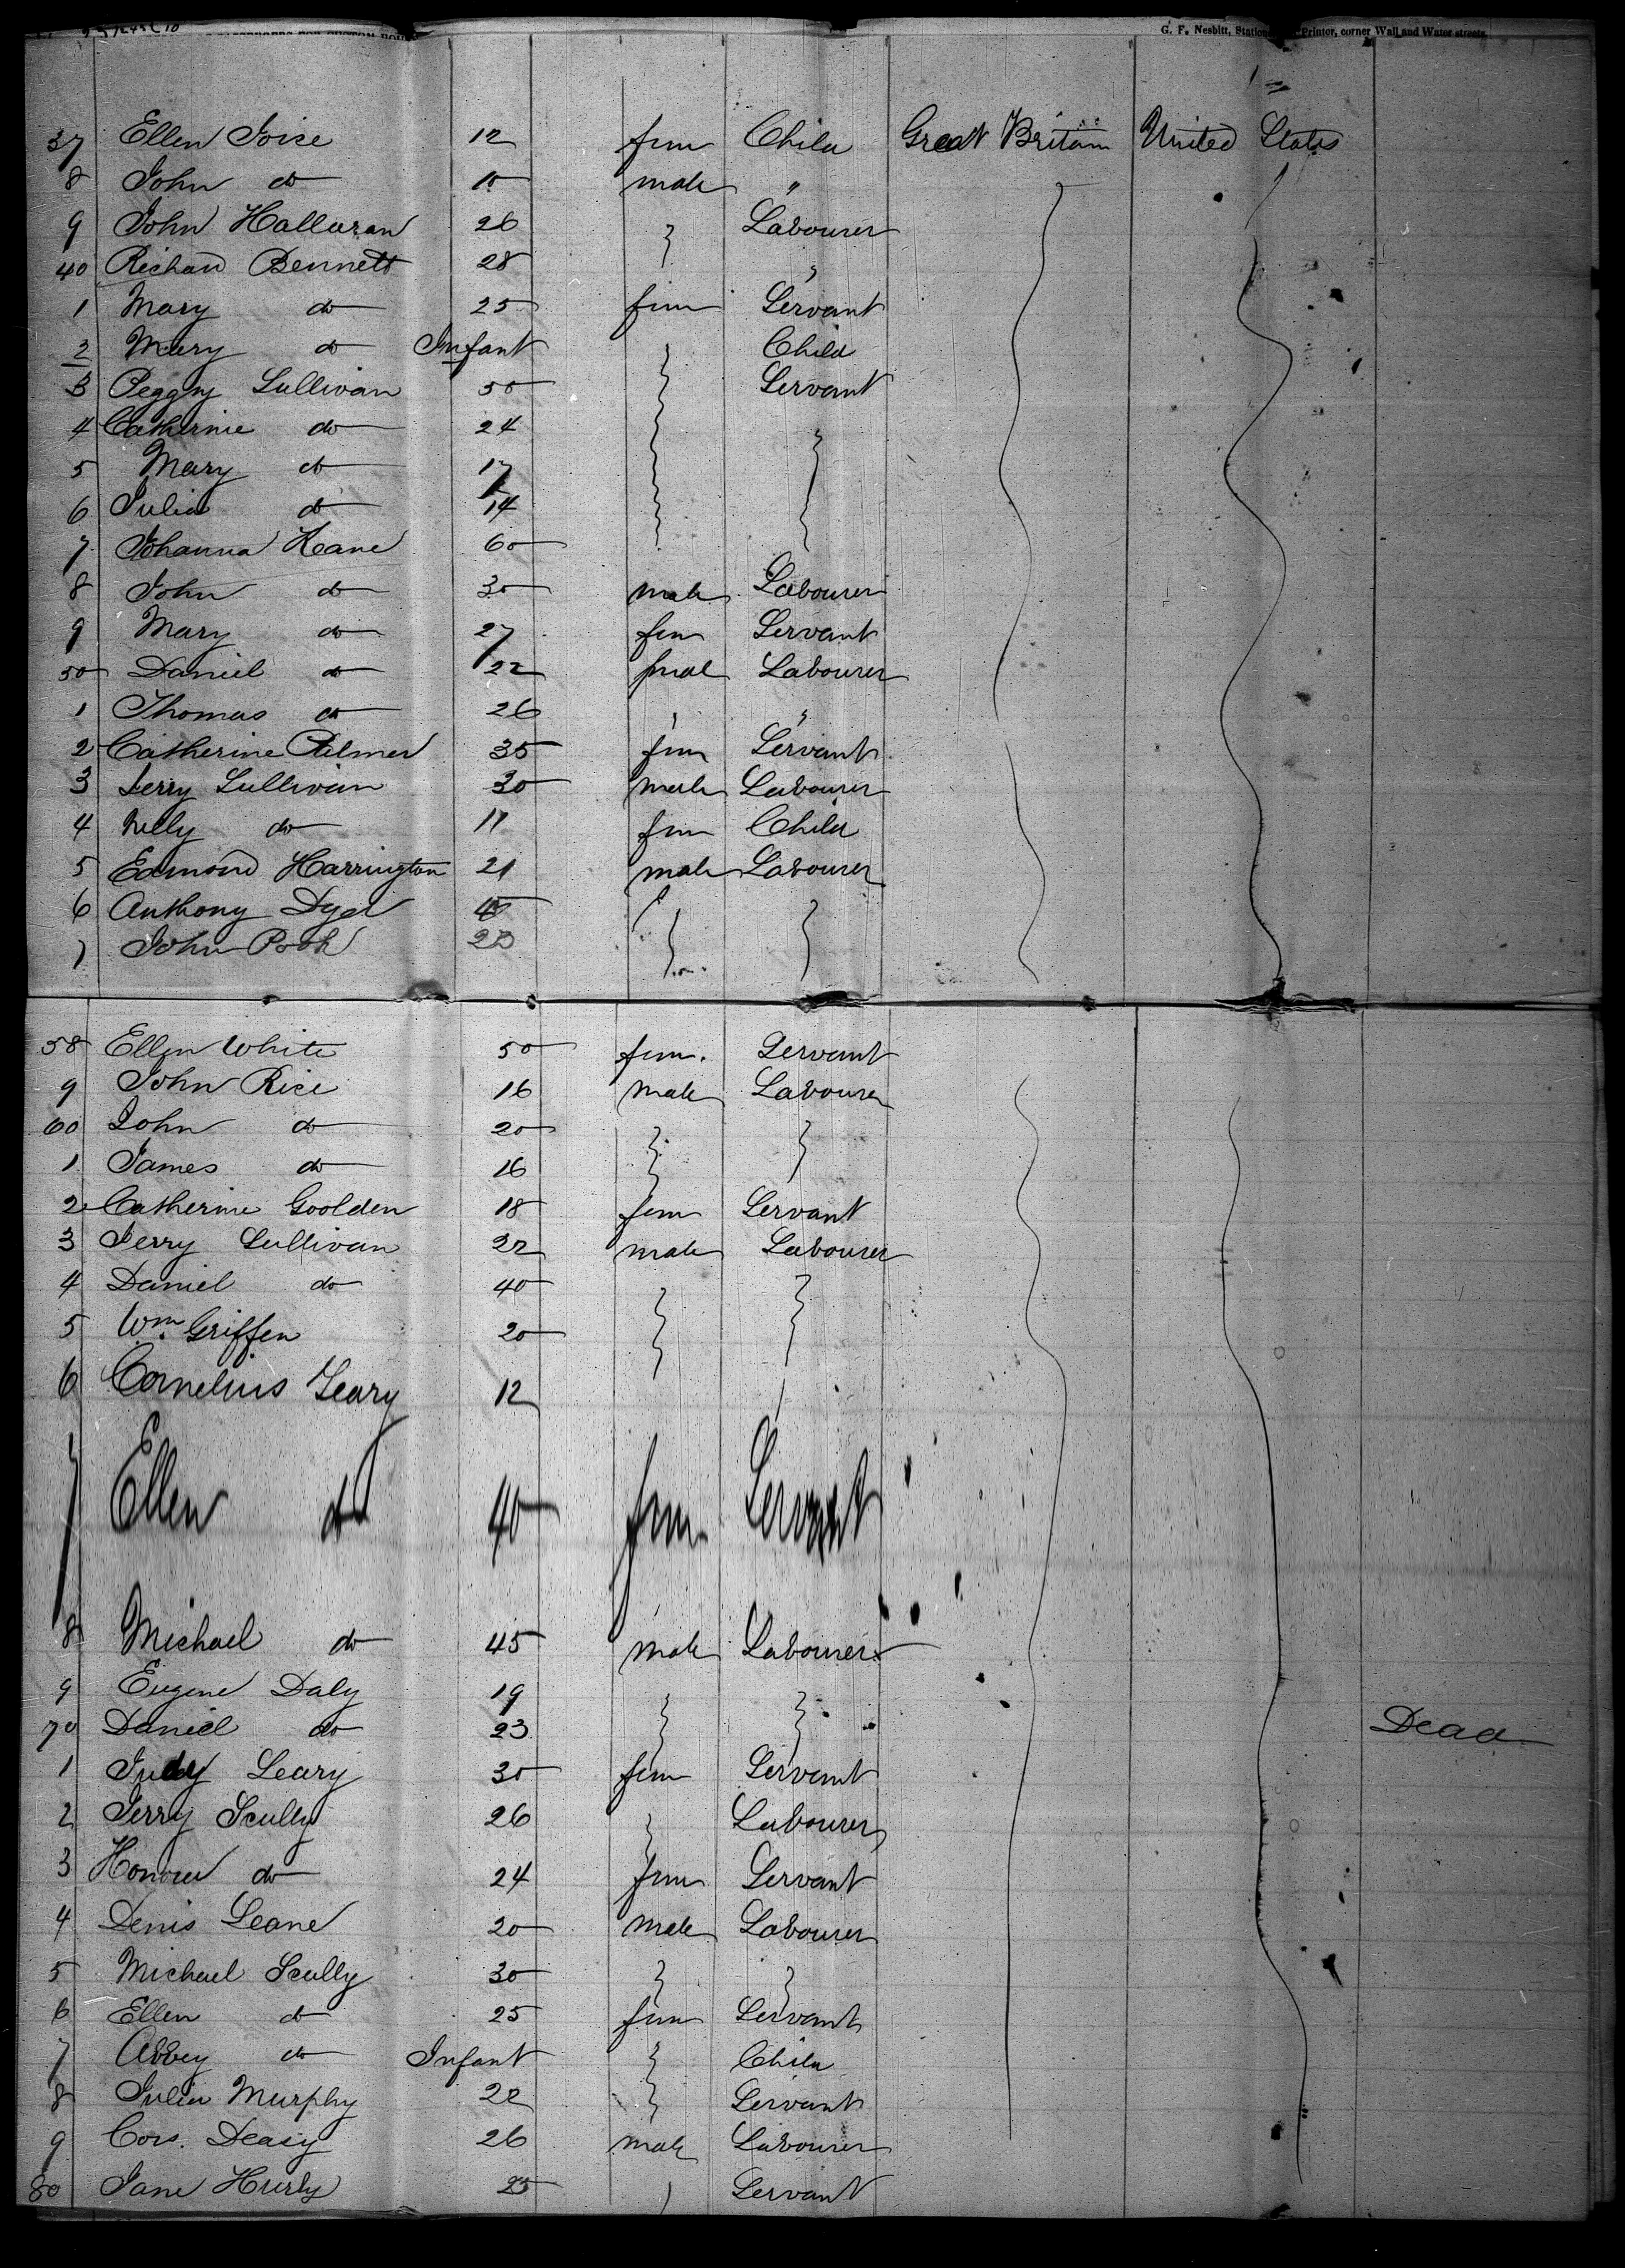 G. F. Nesbitt, Stationer Printer, corner Wall and Water streets.
37 Ellen Joice 12 fem Child Great Britain United States
8 John do 10 male "
9 John Halluran 26 Labourer
40 Richard Bennett 28 "
1 Mary do 25 fem Servant
2 Mary do Infant Child
3 Peggy Sullivan 50 Servant
4 Catherine do 24
5 Mary do 17
6 Julia do 14
7 Johanna Keane 60
8 John do 30 male Labourer
9 Mary do 27 fem Servant
50 Daniel do 22 male Labourer
1 Thomas do 26 " "
2 Catherine Palmer 35 fem Servant
3 Jerry Sullivan 30 male Labourer
4 Nelly do 11 fem Child
5 Edmond Harrington 21 male Labourer
6 Anthony Dyer
7 John
58 Ellen White 50 fem. Servant
9 John Rice 16 male Labourer
60 John do 20
1 James do 16
2 Catherine Goolden 18 fem Servant
3 Jerry Sullivan 22 male Labourer
4 Daniel do 40
5 Wm. Griffen 20
6 Cornelius Leary 12
7 Ellen do 40 fem Servant
8 Michael do 45 male Labourer
9 Eugene Daly 19
70 Daniel do 23 Dead
1 Judy Leary 30 fem Servant
2 Jerry Scully 26 Labourer
3 Honour do 24 fem Servant
4 Denis Leane 20 male Labourer
5 Michael Scully 30
6 Ellen do 25 fem Servant
7 Abbey do Infant Child
8 Julia Murphy 22 Servant
9 Cors. Deasy 26 male Labourer
80 Jane Hurly 25 Servant